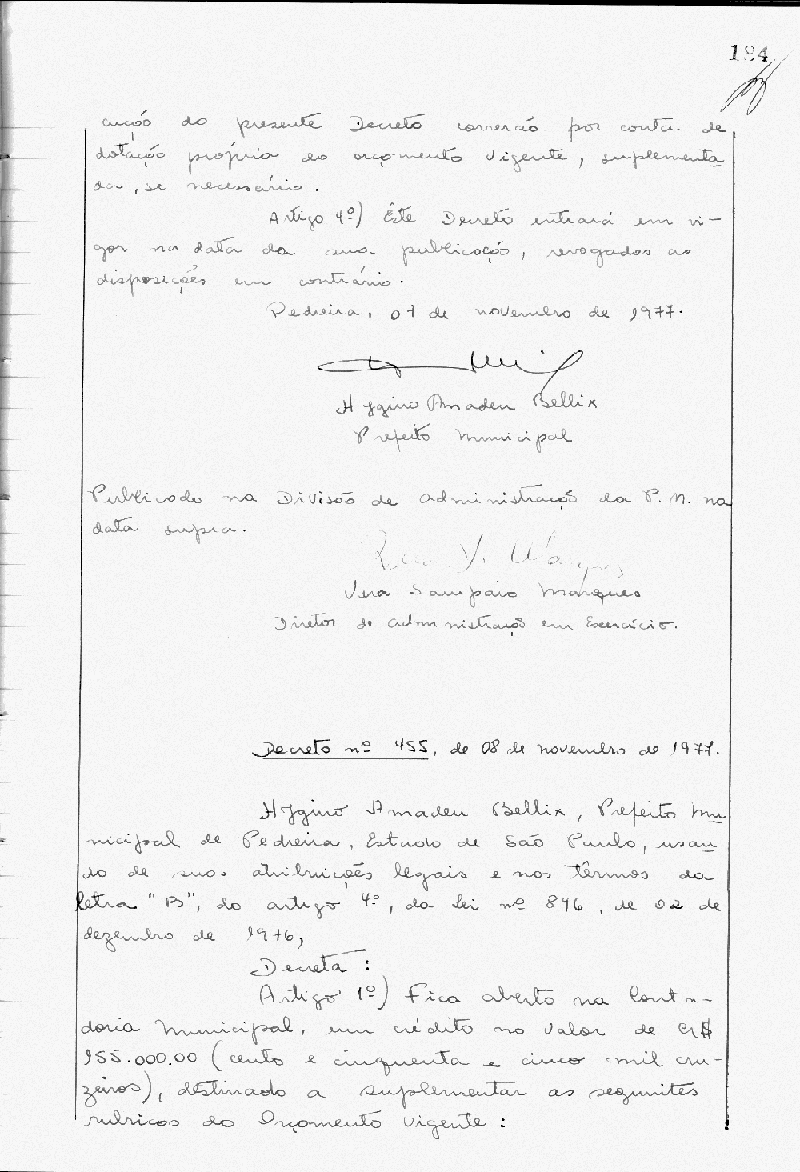 184
cução do presente Decreto correrão por conta de
dotação própria do orçamento vigente, suplementa
da, se necessário.
Artigo 4º) Êste Decreto entrará em vi-
gor na data da sua publicação, revogados as
disposições em contrário.
Pedreira, 07 de novembro de 1977.
Hygino Amadeu Bellix
Prefeito Municipal
Publicado na Divisão de Administração da P. M. na
data supra.
Vera Sampaio Marques
Diretor de Administração em Exercício.
Decreto nº 455, de 08 de novembro de 1977.
Hygino Amadeu Bellix, Prefeito Mu
nicipal de Pedreira, Estado de São Paulo, usan
do de suas atribuições legais e nos têrmos da
letra "B", do artigo 4º, da Lei nº 846, de 02 de
dezembro de 1976,
Decreta:
Artigo 1º) Fica aberto na Conta-
doria Municipal, um crédito no valor de CR$
155.000.00 (cento e cinquenta e cinco mil cru-
zeiros), destinado a suplementar as seguintes
rubricas do Orçamento Vigente: